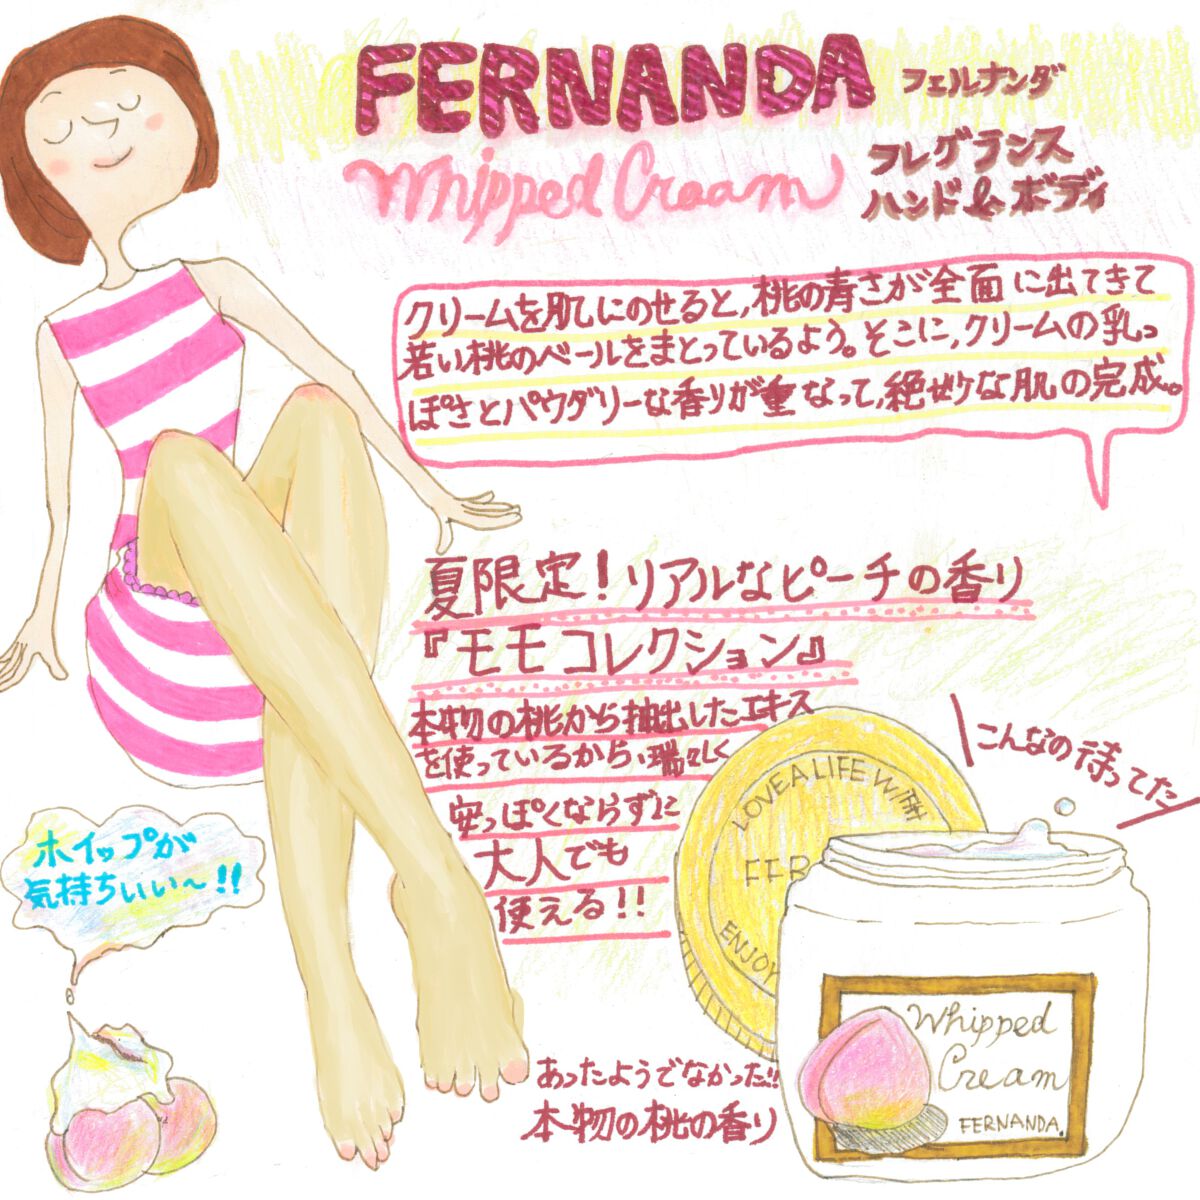 FERNANDA
フェルナンダ
Whipped Cream
フレグランス
ハンド&ボディ
クリームを肌にのせると,桃の青さが全面に出てきて
若い桃のベールをまとっているよう。そこに,クリームの乳っ
ぽさとパウダリーな香りが重なって,絶妙な肌の完成。
夏限定!リアルなピーチの香り
『モモコレクション』
本物の桃から抽出したエキス
を使っているから、瑞々しく
安っぽくならずに
大人でも
使える!!
こんなの待ってた
ホイップが
気持ちいい〜!!
LOVE A LIFE WITH
FER
ENJOY
Whipped
Cream
FERNANDA.
あったようでなかった!!
本物の桃の香り